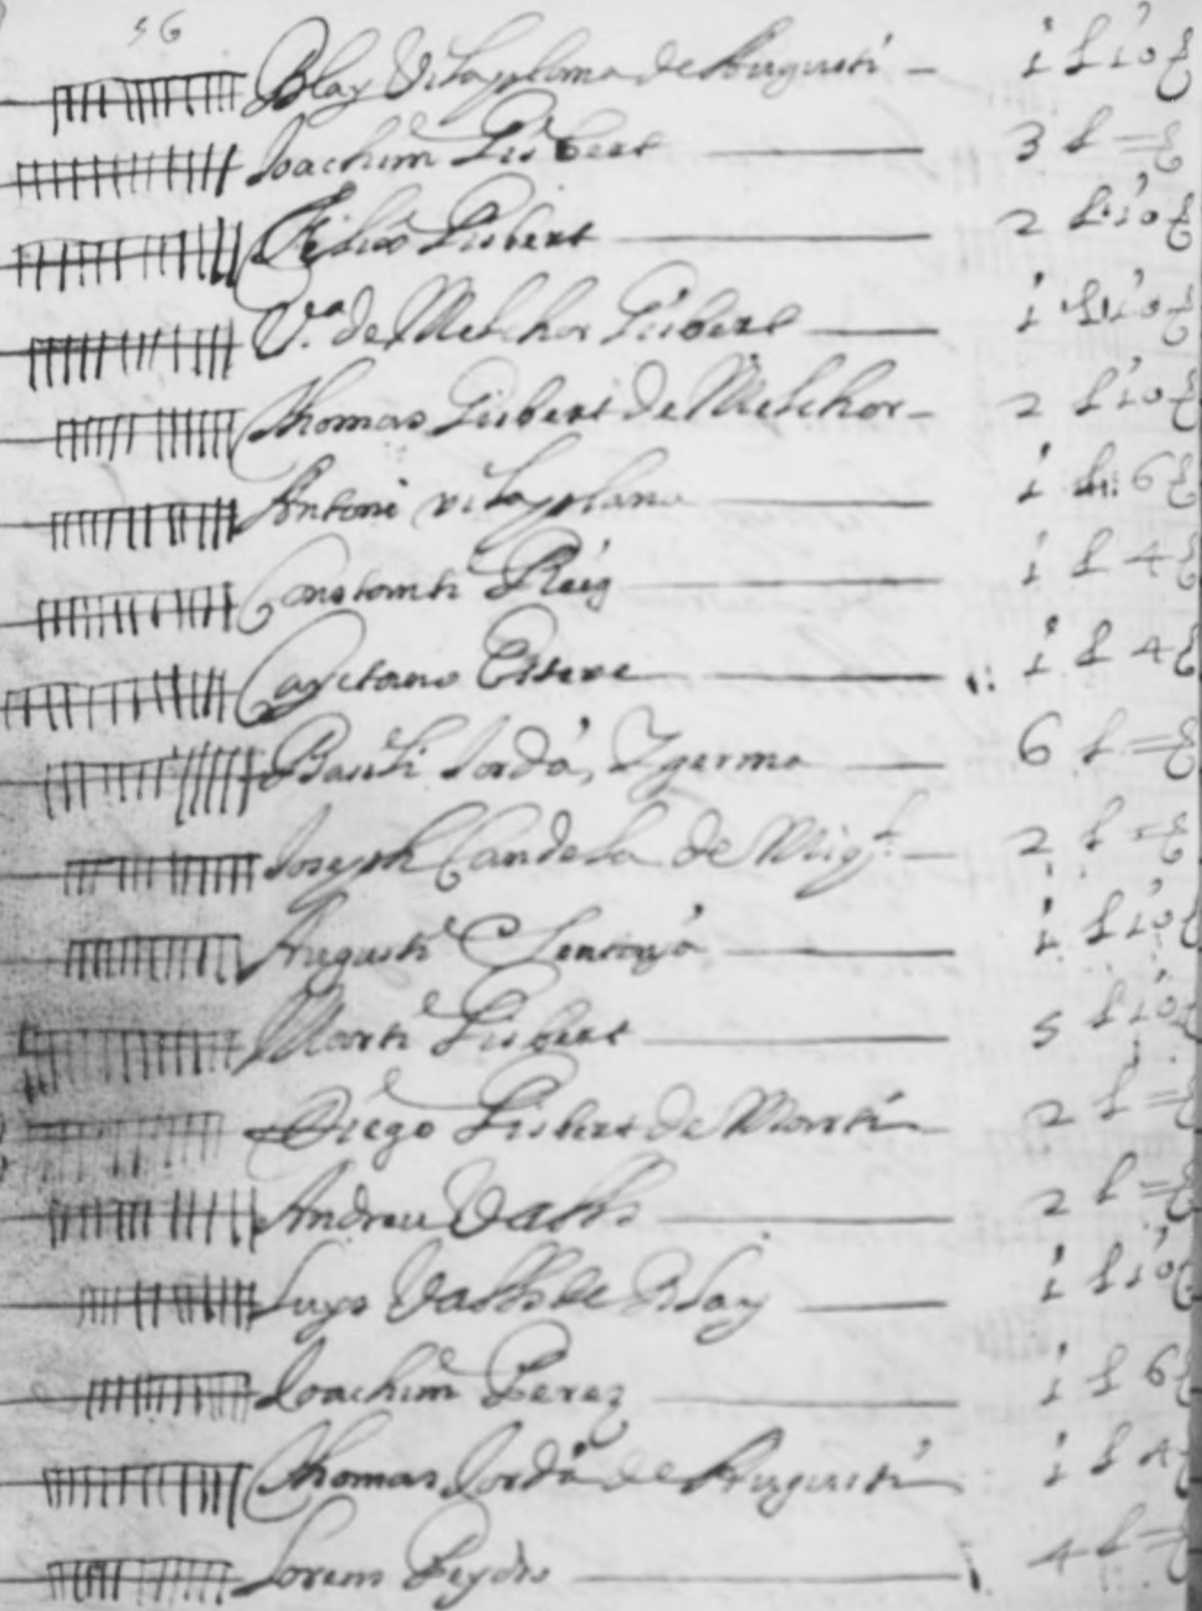 56
Blay Vilaplana de Augusti — 1 £ 10 s
Joachim Gisbert — 3 £ = s
Felix Gisbert — 2 £ 10 s
V.ª de Melchor Gisbert — 1 £ 10 s
Thomas Gisbert de Melchor — 2 £ 10 s
Antoni Vilaplana — 1 £ 6 s
Constanti Reig — 1 £ 4 s
Cayetano Esteve — 1 £ 4 s
Bauti Jordá, Y germa — 6 £ = s
Joseph Candela de Mig.l — 2 £ = s
Augusti — 1 £ 10 s
Marti Gisbert — 5 £ 10 s
Diego Gisbert de Martí — 2 £ = s
Andreu Valls — 2 £ = s
Luys Valls de Blay — 1 £ 10 s
Joachim Perez — 1 £ 6 s
Thomas Jordá de Augusti — 1 £ 4 s
Lorens Peydro — 4 £ = s